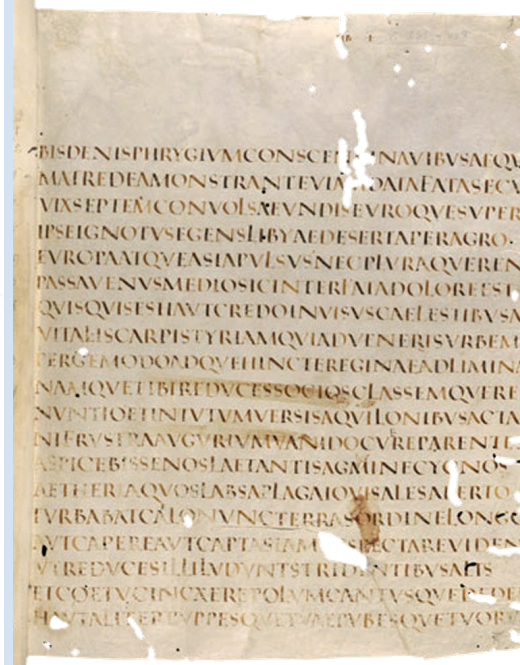 BISDENISPHRYGIVMCONSCEN INAVIBVSAEQV
MATREDEAMONSTRANTEVIA DATAFATASECV
VIXSEPTEMCONVOLSAEVNDISEVROQVESVPER
IPSEIGNOTVSEGENSLIBYAEDESERTAPERAGRO·
EVROPAATQVEASIAPVLSVSNECPLVRAQVEREN
PASSAVENVSMEDIOSICINTERFATADOLOREEST
QVISQVISESHAVTCREDOINVISVSCAELESTIBVSA
VITALISCARPISTYRIAMQVIADVENERISVRBEM
PERGEMODOADQVEHINCTEREGINAEADLIMINA
NAMQVETIBIREDVCESSOCIOSCLASSEMQVERE
NVNTIOETINTVTVMVERSISAQVILONIBVSACTA
NIFRVSTRAAVGVRIVMVANIDOCVREPARENTE
ASPICEBISSENOSLAETANTISAGMINECYCNOS
AETHERIAQVOSLABSAPLAGAIOVISALESAPERTO
TVRBABATCAELONVNCTERRASORDINELONGO
AVTCAPEREAVTCAPTASIAM SPECTAREVIDEN
VTREDVCESILLILVDVNTSTRIDENTIBVSALIS
ETCOETVCINXEREPOLVMCANTVSQVEDEDE
HAVTALITERPVPPESQVETVAEPVBESQVETVORV